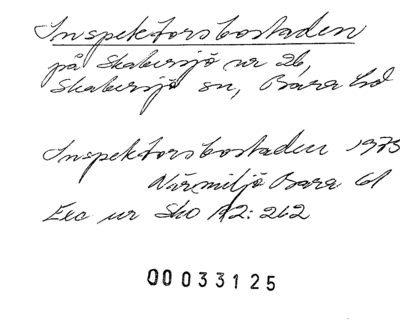 Inspektorsbostaden
på Skabersjö nr 26,
Skabersjö sn, Bara hd
Inspektorsbostaden 1973
Närmiljö Bara
Exc ur Sko A2:262
00033125